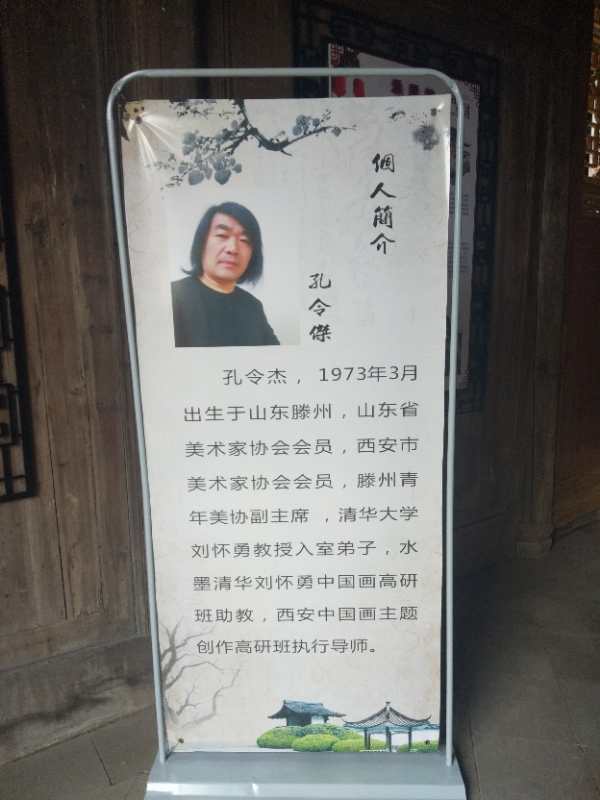 個人簡介
孔令傑
孔令杰，1973年3月
出生于山东滕州，山东省
美术家协会会员，西安市
美术家协会会员，滕州青
年美协副主席，清华大学
刘怀勇教授入室弟子，水
墨清华刘怀勇中国画高研
班助教，西安中国画主题
创作高研班执行导师。